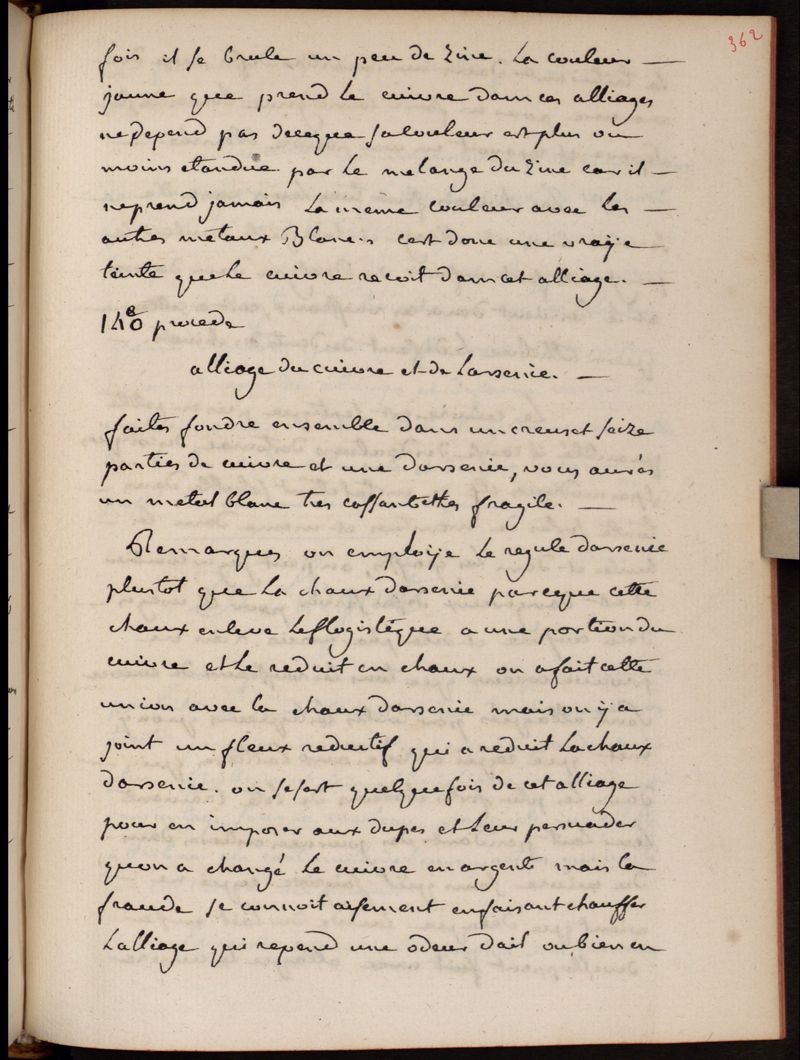 362
fois il se brule un peu de zinc. La couleur —
jaune que prend le cuivre dans ces alliages
ne depend pas de ceque sa couleur est plus ou
moins etandue par le melange du zinc car il —
neprend jamais La même couleur avec les —
autres metaux Blancs cest donc une vraÿe
teinte que Le cuivre recoit dans cet alliage. —
148e procede
alliage du cuivre et de Larsenic. —
faites fondre ensemble dans un creuset seize
parties de cuivre et une darsenic, vous aurés
un metal blanc tres cassant et tres fragile. —
Remarques on emploÿe Le regule darsenic
plustot que La chaux darsenic parceque cette
chaux enleve Leflogistique a une portion du
cuivre et Le reduit en chaux on a fait cette
union avec la chaux darsenic mais on ÿ a
joint un fleux reductif qui a reduit La chaux
darsenic. on se sert quelquefois de cet alliage
pour en imposer aux dupes et Leur persuader
quon a changé Le cuivre en argent mais la
fraude se connoit aisement enfaisant chauffer
Lalliage qui repend une odeur dail oubien en